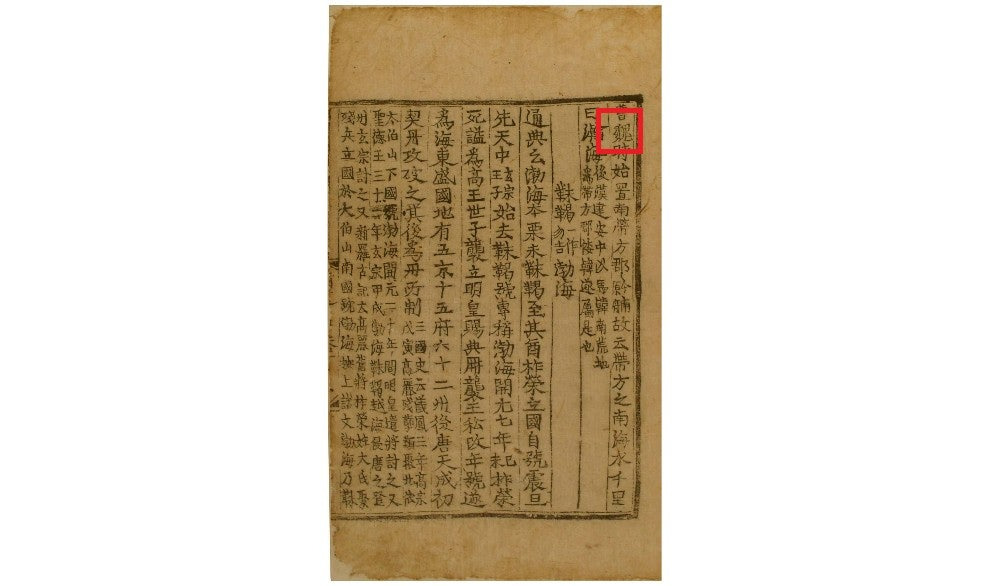 曹魏時始置南帶方郡故云帶方之南海水千里
曰瀚海後漢建安中以馬韓南荒地
爲帶方郡倭韓遂屬是也
靺鞨一作勿吉渤海
通典云渤海本栗末靺鞨至其酋柞榮立國自號震旦
先天中玄宗壬子始去靺鞨號專稱渤海開元七年己未柞榮
死謚爲高王世子襲立明皇賜典冊襲王私改年號遂
爲海東盛國地有五京十五府六十二州後唐天成初
契丹攻破之其後爲丹所制三國史云儀鳳三年高宗
戊寅高麗殘孽類聚北依
太伯山下國號渤海開元二十年間明皇遣將討之又
聖德王三十二年玄宗甲戌渤海靺鞨越海侵唐之登
州玄宗討之又新羅古記云高麗舊將柞榮姓大氏聚
殘兵立國於大伯山南國號渤海按上諸文渤海乃靺